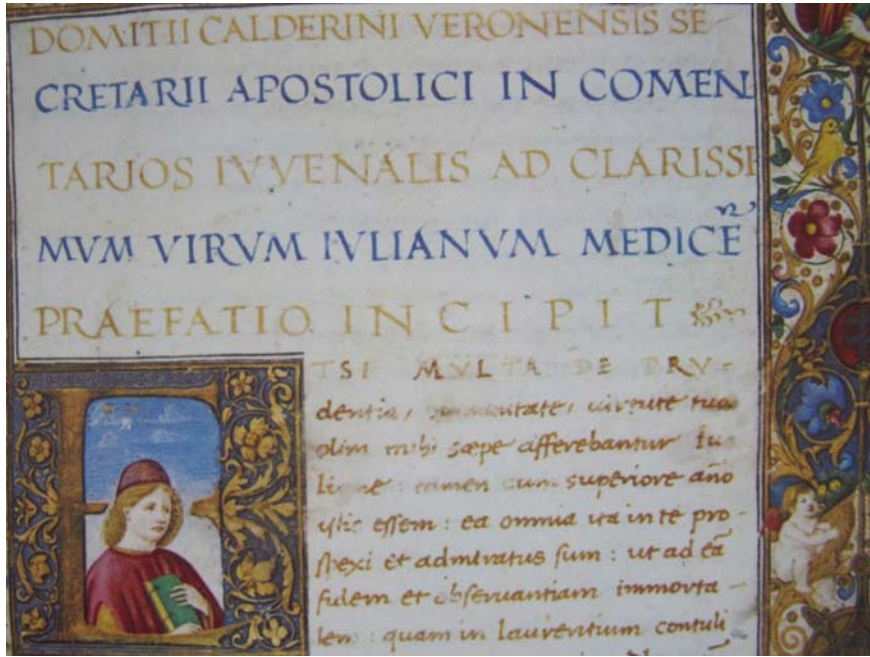 DOMITII CALDERINI VERONENSIS SE-
CRETARII APOSTOLICI IN COMEN
TARIOS IVVENALIS AD CLARISSI
MVM VIRVM IVLIANVM MEDICĒ
PRAEFATIO INCIPIT
TSI MVLTA DE PRV-
dentia, humanitate, uirtute tua
olim mihi sæpe afferebantur Iu-
liane: tamen cum superiore año
istic essem: ea omnia ita in te pro-
spexi et admiratus sum: ut ad eā
fidem et obseruantiam immorta-
lem: quam in laurentium contuli